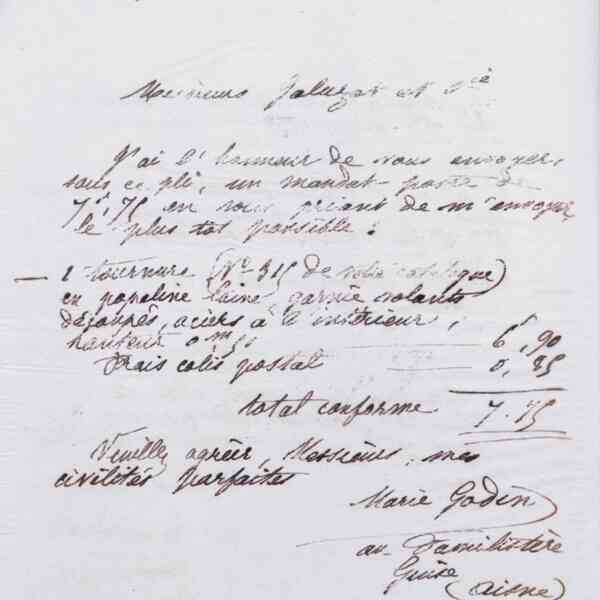 Messieurs Jaluzot et Cie
J'ai l'honneur de vous envoyer,
sous ce pli, un mandat-poste de
7f,75 en vous priant de m'envoyer
le plus tôt possible :
— 1 tournure (No 315 de votre catalogue)
en popeline laine, garnie volants
découpés, aciers à l'intérieur,
hauteur 0m 6f,90
Frais colis postal 0,85
total conforme 7.75
Veuillez agréer, Messieurs, mes
civilités parfaites
Marie Godin
au Familistère
Guise
(Aisne)